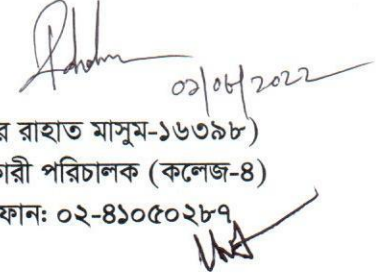 ০১/০৮/২০২২
র রাহাত মাসুম-১৬৩৯৮)
কারী পরিচালক (কলেজ-৪)
ফোন: ০২-৪১০৫০২৮৭